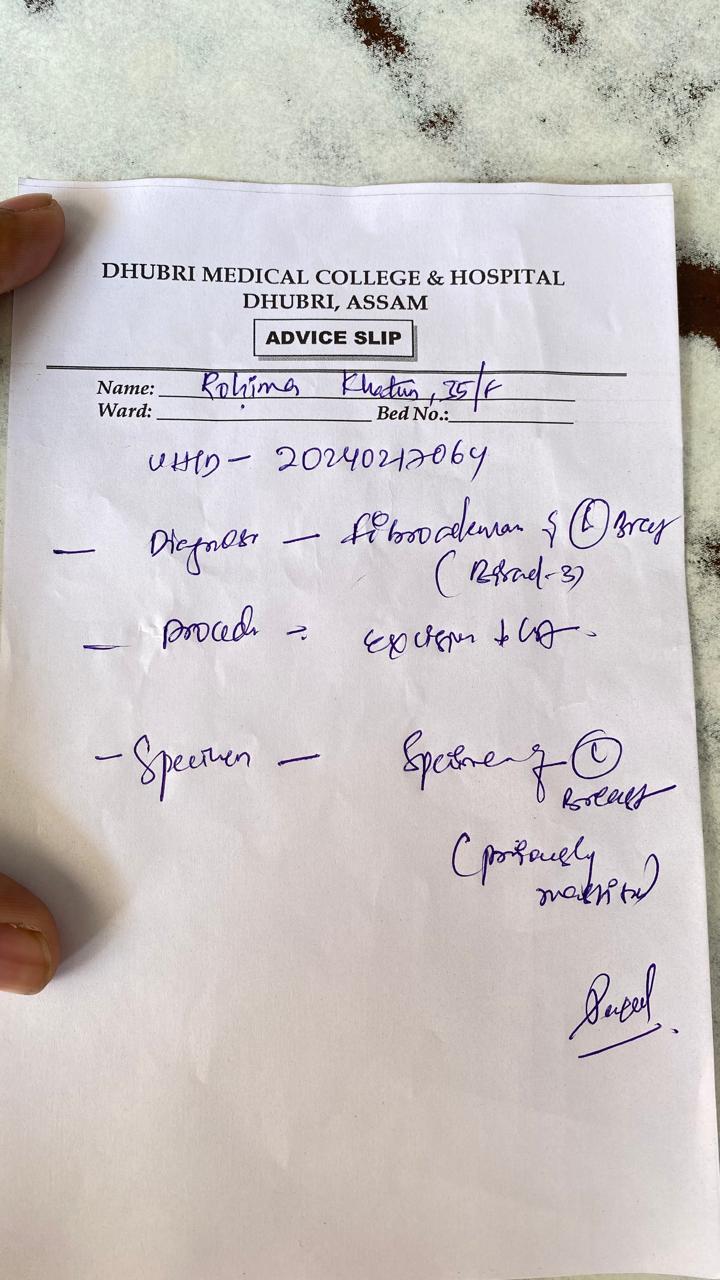 DHUBRI MEDICAL COLLEGE & HOSPITAL
DHUBRI, ASSAM
ADVICE SLIP
Name: Rohima Khatun, 35/F
Ward: Bed No.:
UHID - 20240217064
- Diagnosis - fibroadenoma of (L) Breast
(Birad-3)
- Procedure : Excision
- Specimen - Specimen of (L)
Breast
(previously